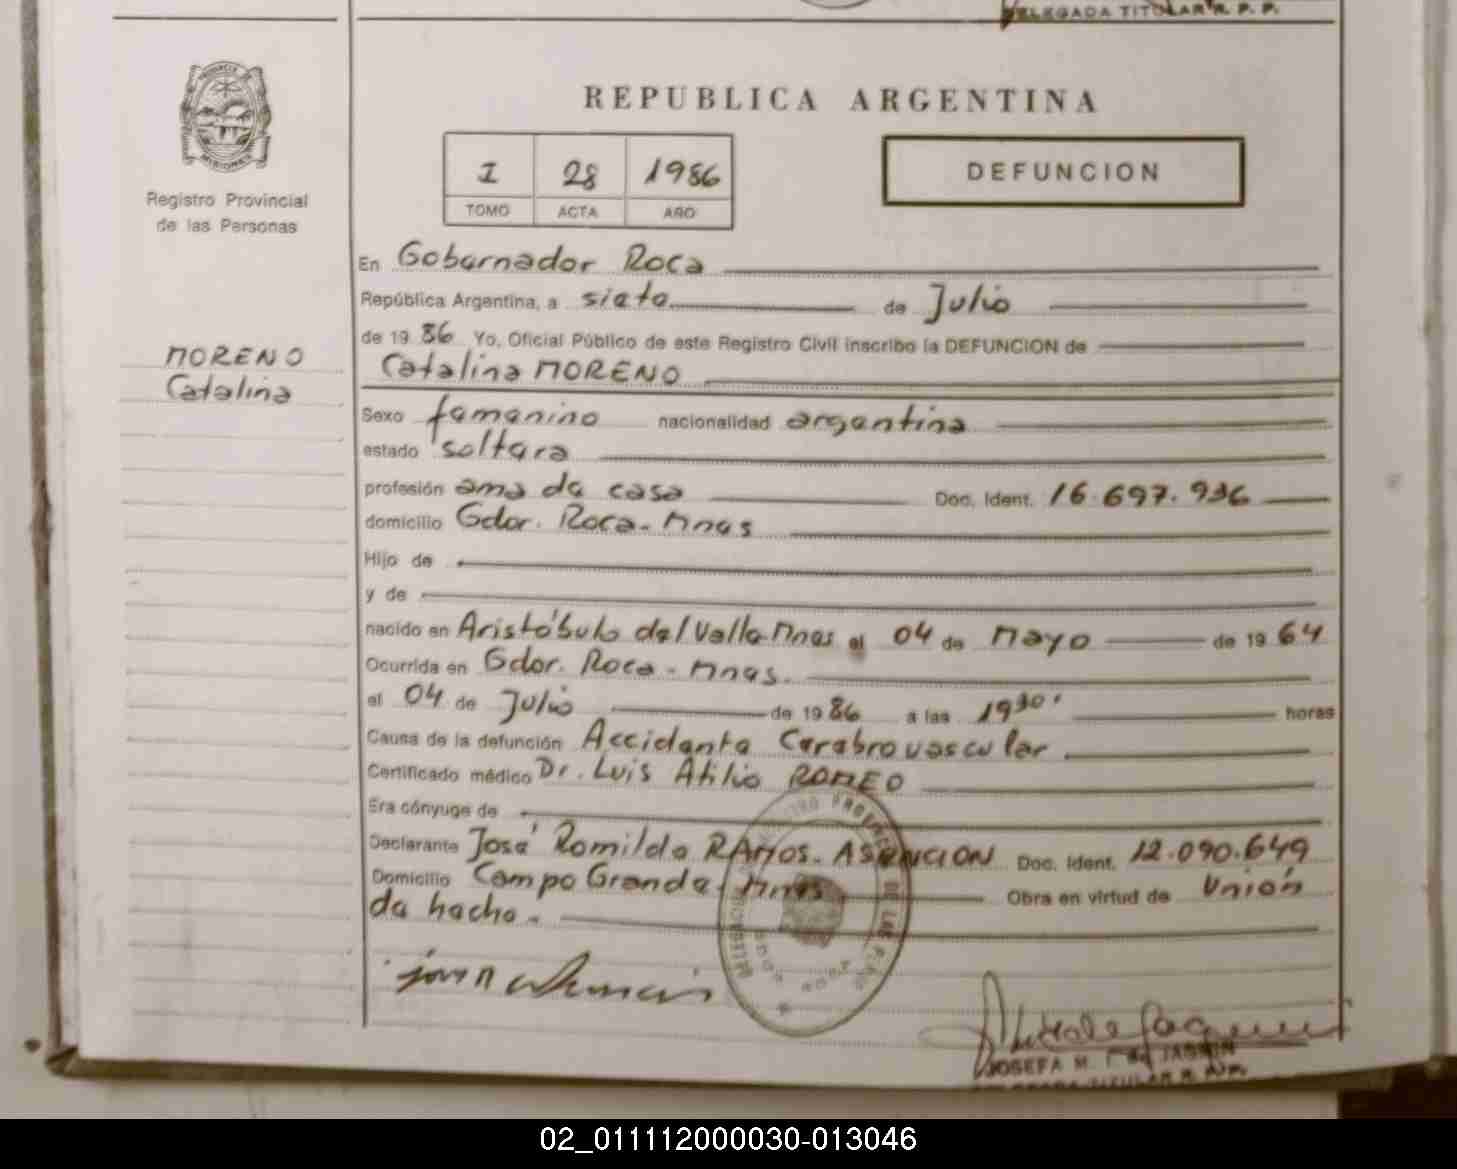 DELEGADA TITULAR R. P. P.
PROVINCIA DE
MISIONES
Registro Provincial
de las Personas
REPUBLICA ARGENTINA
I 28 1986
TOMO ACTA AÑO
DEFUNCION
En Gobernador Roca
República Argentina, a siete de Julio
de 19 86 Yo, Oficial Público de este Registro Civil inscribo la DEFUNCION de
MORENO
Catalina
Catalina MORENO
Sexo femenino nacionalidad argentina
estado soltera
profesión ama de casa Doc. Ident. 16.697.936
domicilio Gdor. Roca - Mnes
Hijo de
y de
nacido en Aristóbulo del Valle-Mnes el 04 de Mayo de 19 64
Ocurrida en Gdor. Roca - Mnes.
el 04 de Julio de 19 86 a las 19 30' horas
Causa de la defunción Accidente Cerebrovascular
Certificado médico Dr. Luis Atilio ROMEO
Era cónyuge de
Declarante José Romildo RAMOS - ASENCION Doc. Ident. 12.090.649
Domicilio Campo Grande - Mnes Obra en virtud de Unión
de hecho.-
JOSEFA M.
DELEGADA TITULAR R. P. P.
02_011112000030-013046